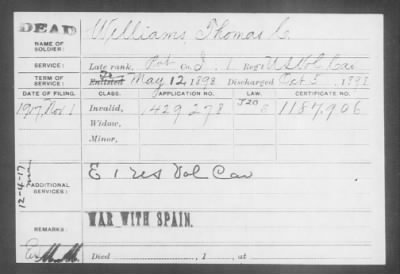 DEAD
NAME OF SOLDIER: Williams, Thomas C.
SERVICE: Late rank, Pvt Co. I, 1 Reg't U.S. Vol Cav
TERM OF SERVICE: Enlisted May 12, 1898 Discharged Oct. 5, 1898
DATE OF FILING. CLASS. APPLICATION NO. LAW. CERTIFICATE NO.
1917, Nov 1 Invalid, 1429278 J20 C 1187,906
Widow,
Minor,
12-4-17
ADDITIONAL SERVICES: E 1 US Vol Cav
REMARKS: WAR WITH SPAIN.
Died , 1 , at